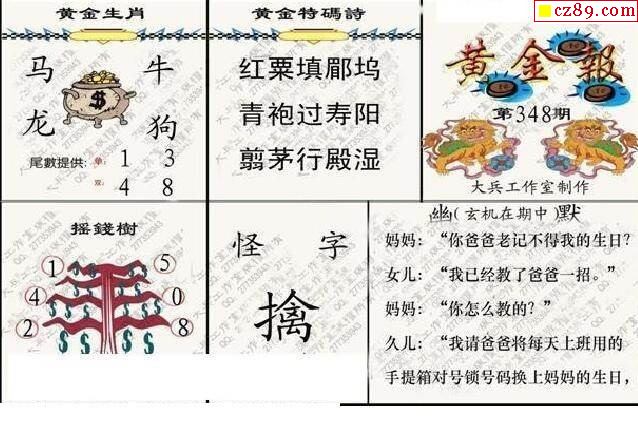 cz89.com
黄金生肖
马 牛
龙 狗
尾數提供：单：1 3
双：4 8
黄金特碼詩
红粟填郿坞
青袍过寿阳
翦茅行殿湿
黄金報
第348期
大兵工作室制作
摇錢樹
1 5
4 0
2 8
怪 字
擒
幽(玄机在期中)默
妈妈：“你爸爸老记不得我的生日？
女儿：“我已经教了爸爸一招。”
妈妈：“你怎么教的？”
久儿：“我请爸爸将每天上班用的
手提箱对号锁号码换上妈妈的生日，